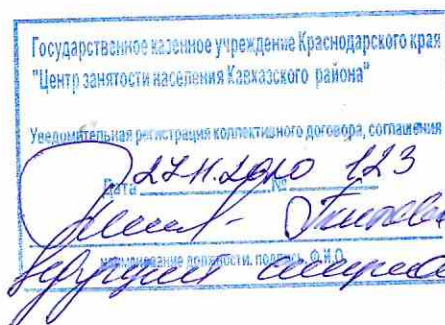 Государственное казенное учреждение Краснодарского края
"Центр занятости населения Кавказского района"
Уведомительная регистрация коллективного договора, соглашения
Дата 27.11.2020 № 123
наименование должности, подпись, Ф.И.О.